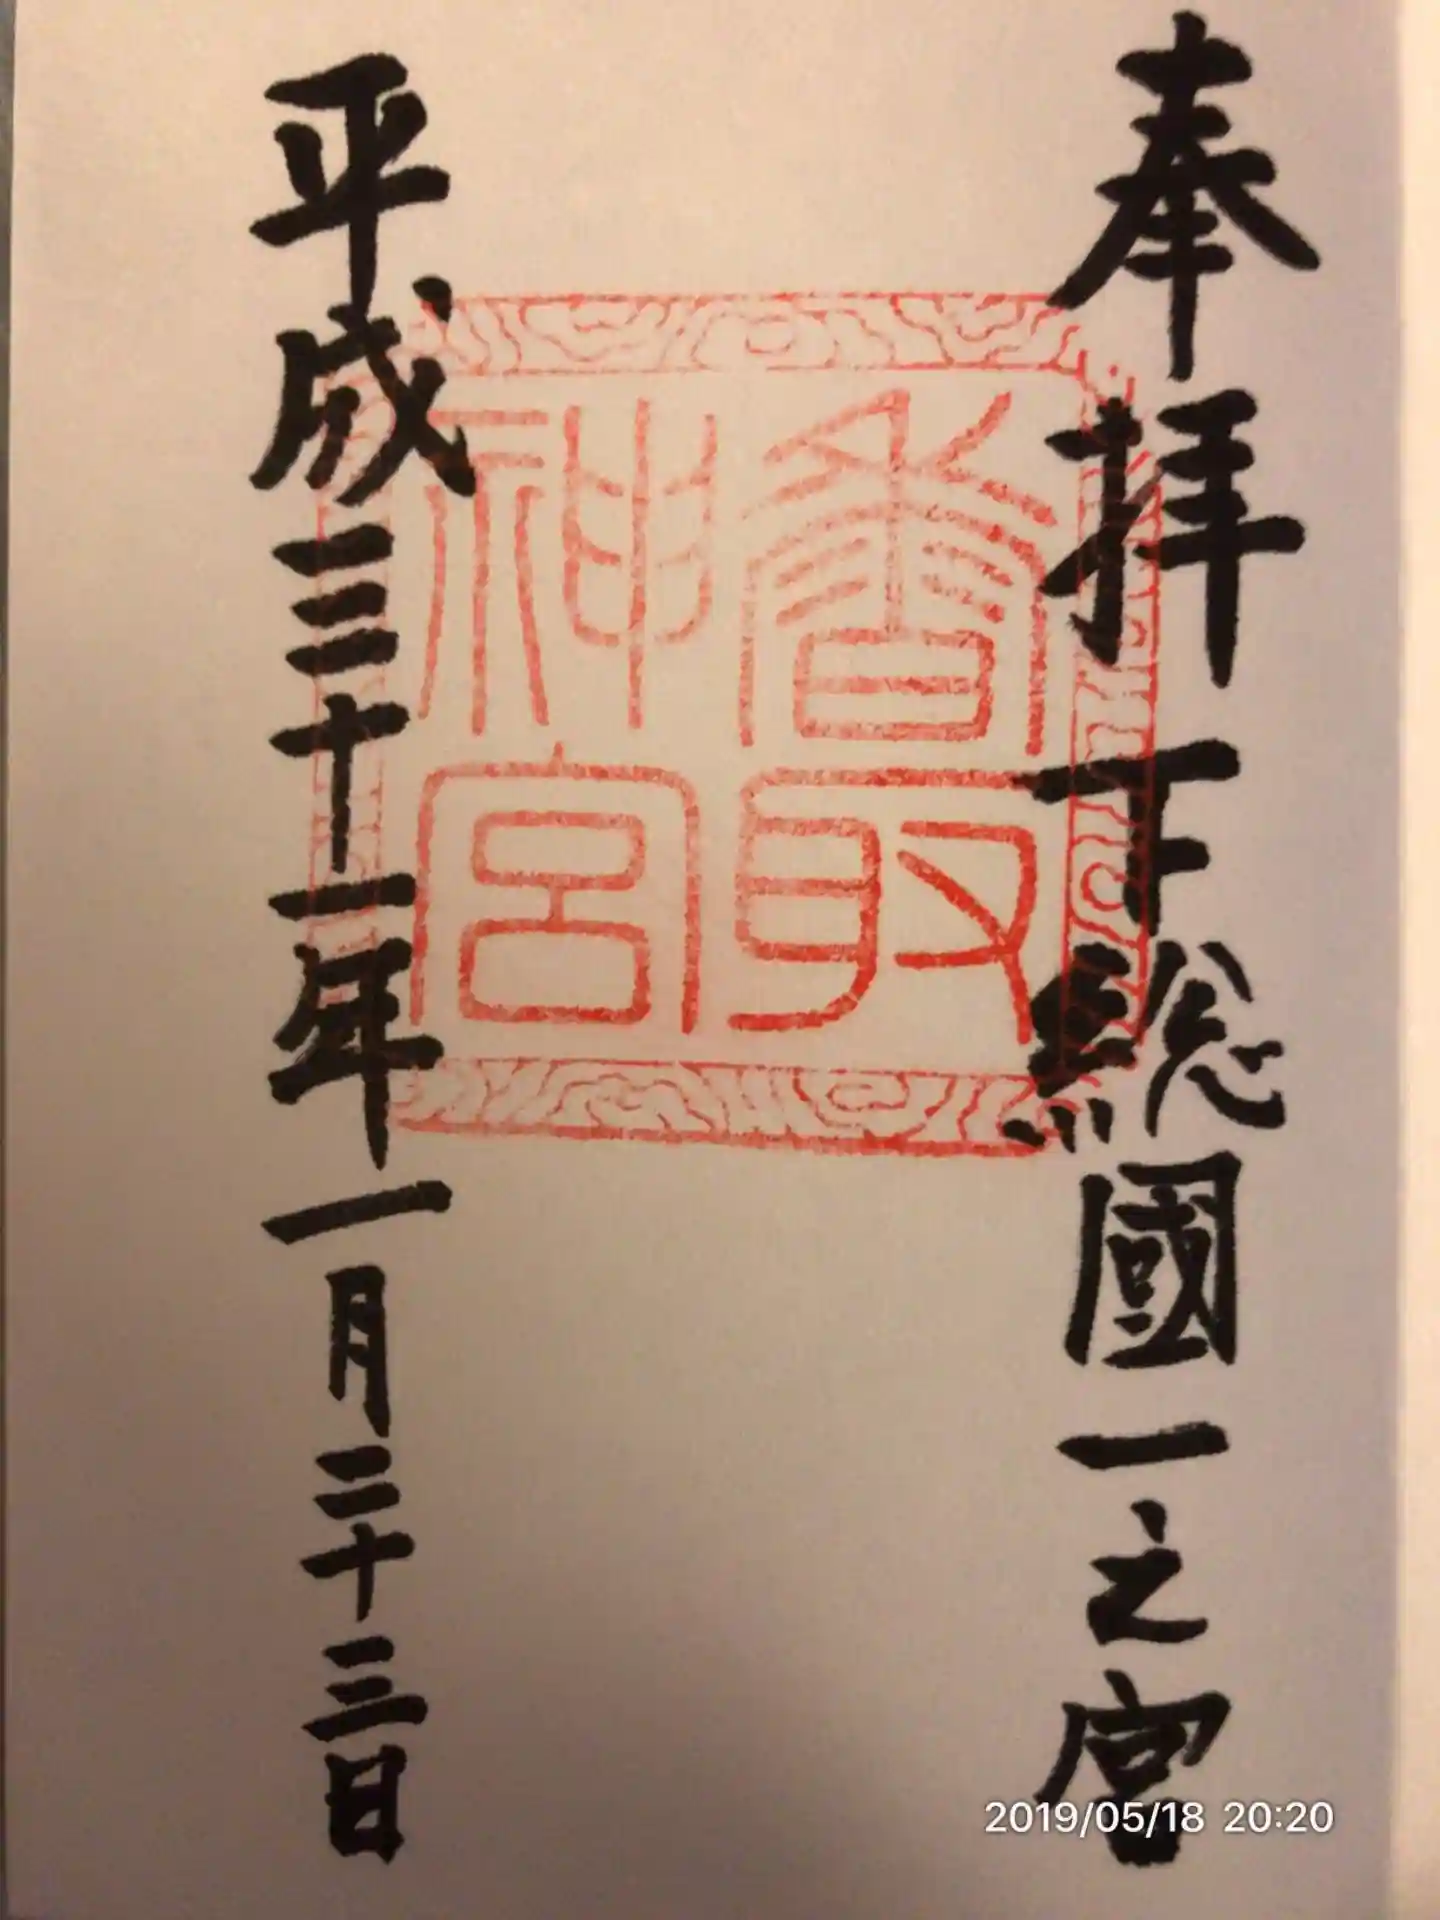 奉拝 下総國一之宮
香取
神宮
平成三十一年一月二十三日
2019/05/18 20:20